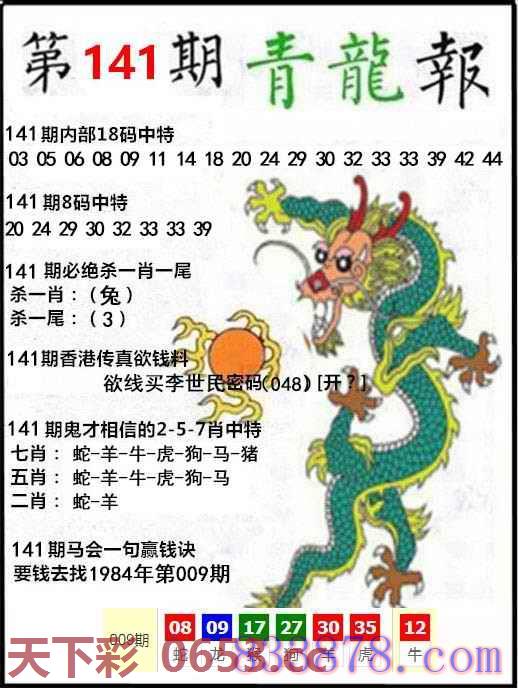 第141期青龍報
141期内部18码中特
03 05 06 08 09 11 14 18 20 24 29 30 32 33 33 39 42 44
141期8码中特
20 24 29 30 32 33 33 39
141期必绝杀一肖一尾
杀一肖：（兔）
杀一尾：（3）
141期香港传真欲钱料
欲线买李世民密码(048)[开？]
141期鬼才相信的2-5-7肖中特
七肖：蛇-羊-牛-虎-狗-马-猪
五肖：蛇-羊-牛-虎-狗-马
二肖：蛇-羊
141期马会一句赢钱诀
要钱去找1984年第009期
009期 08 09 17 27 30 35 12
蛇 龙 狗 羊 虎 牛
天下彩 0653.cc
838878.com